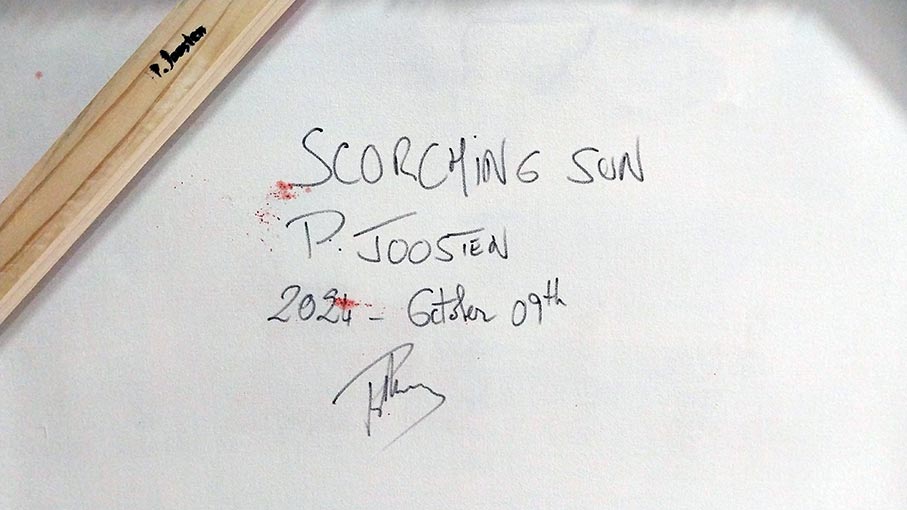 P. Joosten
SCORCHING SUN
P. JOOSTEN
2024 - October 09th